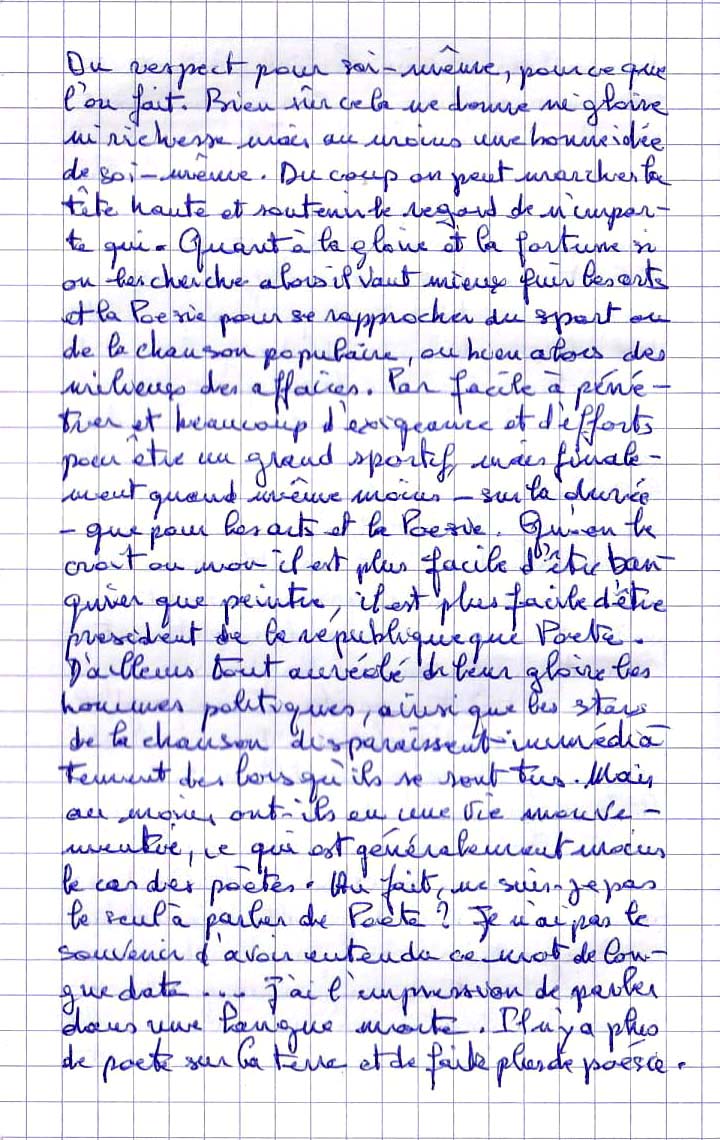 Du respect pour soi-même, pour ce que
l'on fait. Bien sûr cela ne donne ni gloire
ni richesse mais au moins une bonne idée
de soi-même. Du coup on peut marcher la
tête haute et soutenir le regard de n'impor-
te qui. Quant à la gloire et la fortune si
on les cherche alors il vaut mieux fuir les arts
et la Poesie pour se rapprocher du sport ou
de la chanson populaire, ou bien alors des
milieux des affaires. Pas facile à péné-
trer et beaucoup d'exigeance et d'efforts
pour être un grand sportif, mais finale-
ment quand même moins - sur la durée
- que pour les arts et la Poesie. Qu'on le
croit ou non il est plus facile d'être ban-
quier que peintre, il est plus facile d'être
president de la république que Poete.
D'ailleurs tout auréolé de leur gloire les
hommes politiques, ainsi que les stars
de la chanson disparaissent immédia
tement des lors qu'ils se sont tus. Mais
au moins ont-ils eu une vie mouve-
mentée, ce qui est généralement moins
le cas des poètes. Au fait, ne suis-je pas
le seul à parler de Poète ? Je n'ai pas le
souvenir d'avoir entendu ce mot de lon-
gue date .... J'ai l'impression de parler
dans une langue morte. Il n'y a plus
de poete sur la terre et de faite plus de poésie.